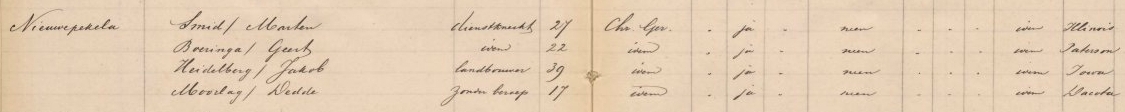 Nieuwepekela Smid / Marten dienstknecht 27 Chr. Ger. " ja " neen " " " idem Illinois
Boeringa / Geert idem 22 idem " ja " neen " " " idem Paterson
Heidelberg / Jakob landbouwer 39 idem " ja " neen " " " idem Iowa
Moorlag / Dedde zonder beroep 17 idem " ja " neen " " " idem Dacota